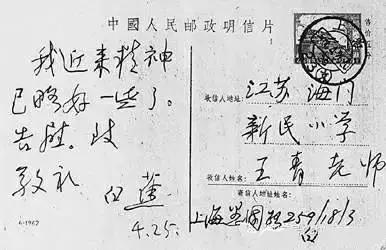 中國人民邮政明信片
售价
我近来精神
已略好一些了。
告慰。此
敬礼
白蕉
4.25.
收信人地址:
江苏 海门
新民小学
收信人姓名:
王青老师
寄信人地址姓名:
上海
259/18/3
白
4-1962